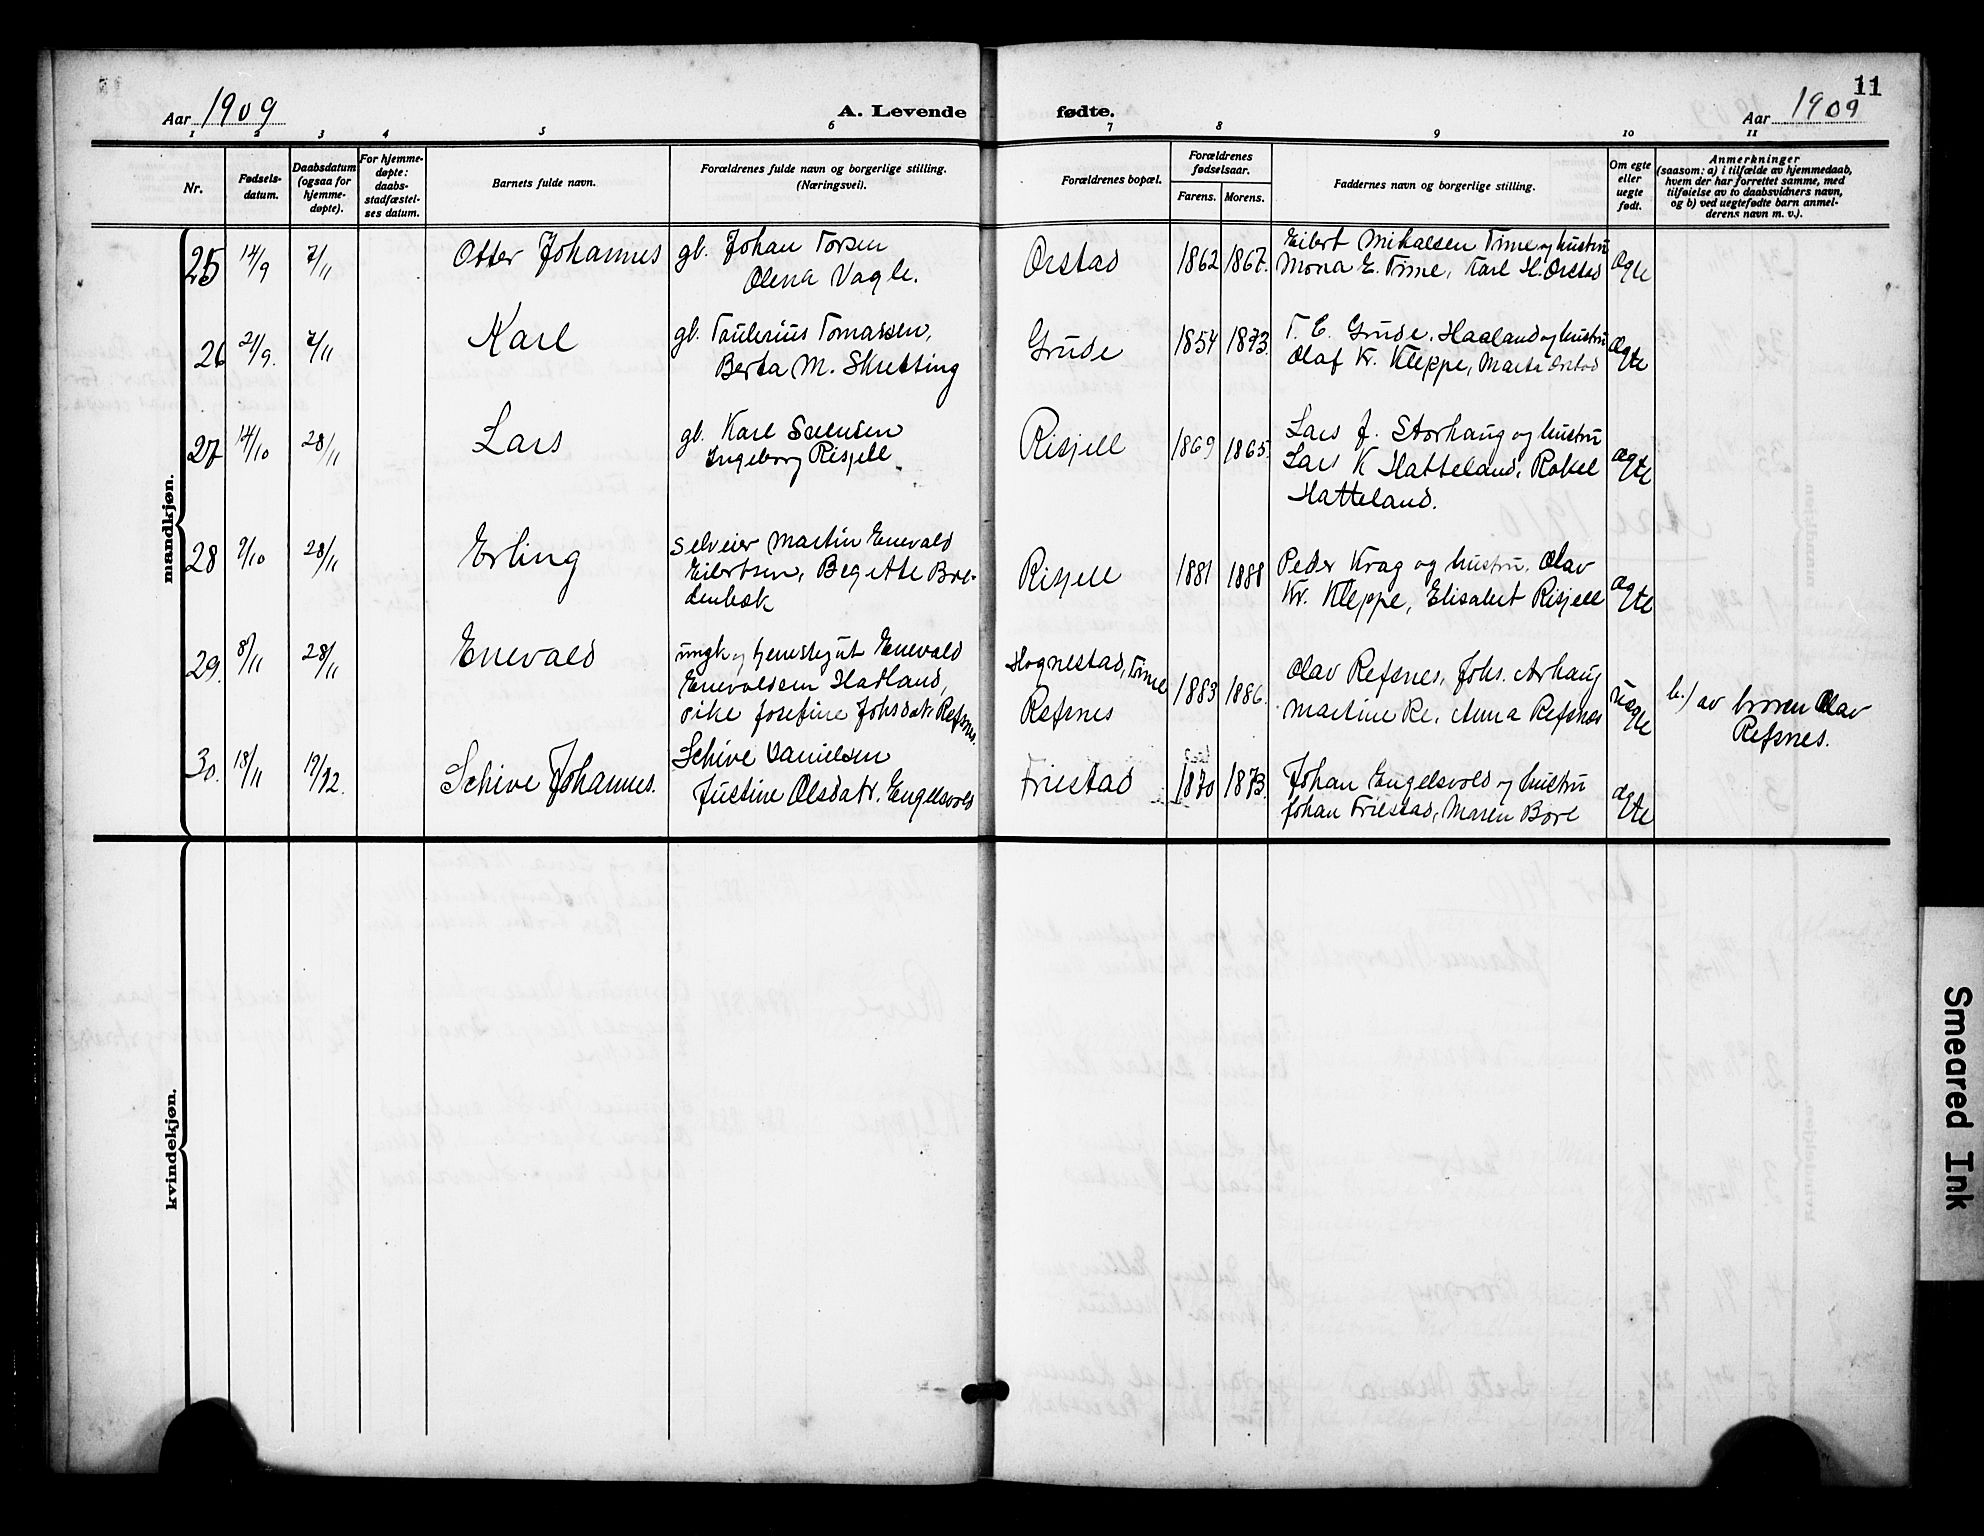 11
Aar 1909
A. Levende fødte.
Aar 1909
1 2 3 4 5 6 7 8 9 10 11
Nr.
Fødsels-
datum.
Daabsdatum
(ogsaa for
hjemme-
døpte).
For hjemme-
døpte:
daabs-
stadfæstel-
ses datum.
Barnets fulde navn.
Forældrenes fulde navn og borgerlige stilling.
(Næringsvei).
Forældrenes bopæl.
Forældrenes
fødselsaar.
Farens. Morens.
Faddernes navn og borgerlige stilling.
Om egte
eller
uegte
født.
Anmerkninger
(saasom: a) i tilfælde av hjemmedaab,
hvem der har forrettet samme, med
tilføielse av to daabsvidners navn,
og b) ved uegtefødte barn anmel-
derens navn m. v.).
mandkjøn.
25 14/9 7/11 Otter Johannes gb. Johan Torsen
Olena Vagle.
Orstad 1862 1867. Eilert Mikalsen Time og hustru
Mona E. Time, Karl H. Orstad
ægte
26 21/9. 7/11 Karl gb. Taulerius Tomassen,
Berta M. Skretting
Grude 1854 1873. T. E. Grude, Haaland og hustru
Olaf Kr. Kleppe, Marta Orstad
ægte
27 14/10 28/11 Lars gb. Karl Sørensen
Ingeborg Risjell
Risjell 1869 1865. Lars J. Storhaug og hustru
Lars K Hatteland, Rakel
Hatteland.
ægte
28 9/10 28/11 Erling selveier Martin Enevald
Eilertsen, Begitte Bre-
denbæk
Risjell 1881 1888 Peder Krag og hustru, Olav
Kr. Kleppe, Elisabet Risjell
ægte
29. 8/11 28/11 Enevald ungk. og tjenestegut Enevald
Enevoldsen Hadland,
pike Josefine Johsdatr Refsnes.
Hognestad, Time
Refsnes
1883 1886. Olav Refsnes, Johs. Arhaug
Martine Re, Anna Refsnes
uægte b.) av broren Olav
Refsnes.
30. 18/11 19/12. Schive Johannes. Schive Danielsen
Justine Olsdatr. Engelsvold
Friestad 1870 1873. Johan Engelsvold og hustru
Johan Friestad, Maren Bore
ægte
kvindekjøn.
Smeared Ink